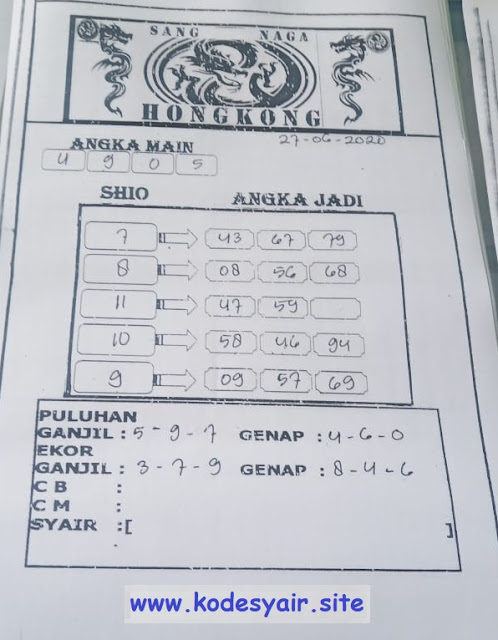 SANG NAGA
HONGKONG
27-06-2020
ANGKA MAIN
4 9 0 5
SHIO ANGKA JADI
7 43 67 79
8 08 56 68
11 47 59
10 58 46 94
9 09 57 69
PULUHAN
GANJIL : 5-9-7 GENAP : 4-6-0
EKOR
GANJIL : 3-7-9 GENAP : 8-4-6
C B :
C M :
SYAIR :[ ]
www.kodesyair.site